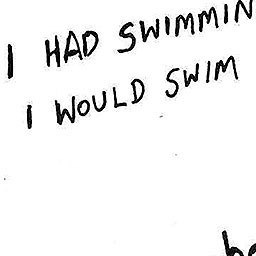 I HAD SWIMMIN
I WOULD SWIM